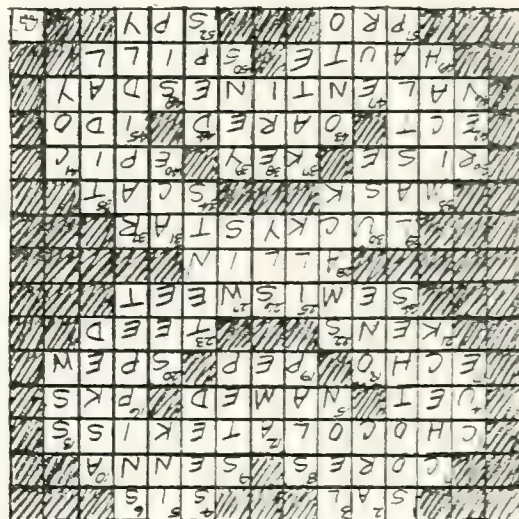 SAL SIS
CORES SENNA
CHOCOLATEKISS
UET NAMED PKS
ECHO PEP SPEW
KENS TEED
SEMISWEET
ALLIN
LUCKYSTAR
MASK SCAT
RISE KEY EPIC
ECT OARED IDO
VALENTINESDAY
HAUTE SPILL
PRO SPY